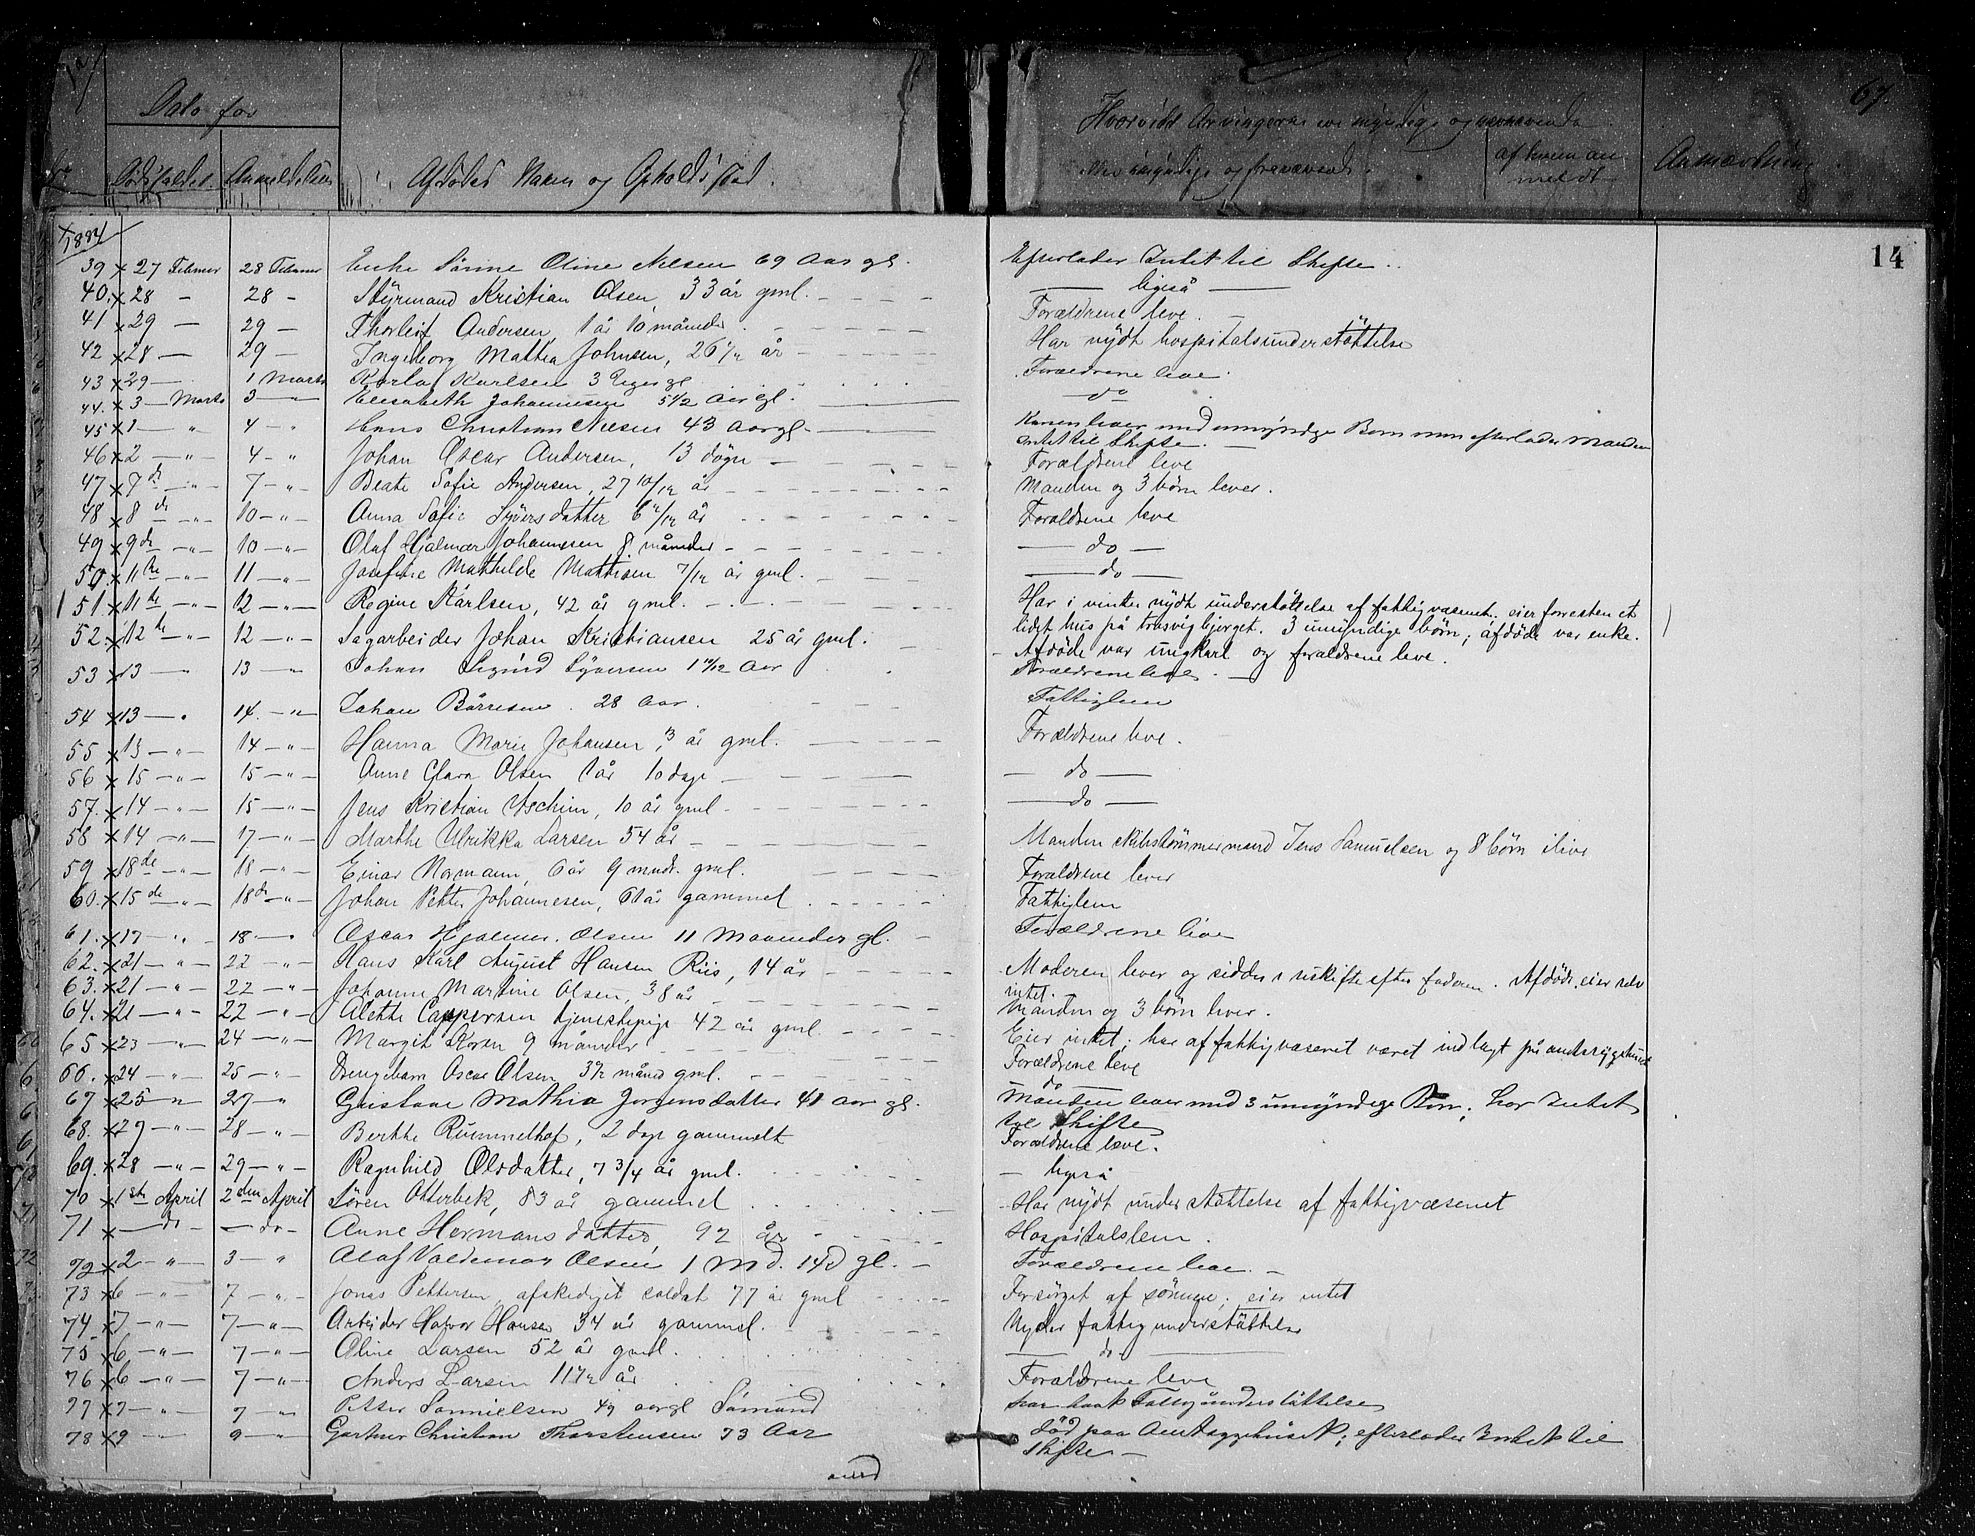 67.
Dato for
Hvorvidt Arvingerne ere myndige og nærværende
Dødsfaldet. Anmeldelsen Afdødes Navn og Opholdssted. af hvem an Anmærkning
umyndige og fraværende. meldt
14
1884
39 x 27 Februar 28 Februar Enke Sörine Oline Nilsen 69 Aar gl. Efterlader Intet til Skifte.
40. x 28 — 28 — Styrmand Kristian Olsen, 33 år gml. — ligeså —
41 x 29 — 29 — Thorleif Andersen, 1 år 10 måneder. Forældrene leve.
42 x 28 — 29 — Ingeborg Mathea Johnsen, 26 1/2 år Har nydt hospitalsunderstöttelse
43 x 29 — 1 Marts Karlot Karlsen 3 Uger gl. Forældrene leve.
44. x 3 — Marts 3 — " Elisabeth Johannesen 5 1/2 Aar gl. — do
45 x 1 — " 4 — " Hans Christian Nilsen 43 Aar gl. Konen lever med umyndige Børn men efterlader Manden
intet til Skifte.
46 x 2 — " 4 — " Johan Oscar Andersen, 13 dögn Forældrene leve
47 x 7de — " 7 — " Beate Sofie Andersen, 27 10/12 år Manden og 3 börn lever.
48 x 8de — " 10 — " Anna Sofie Syversdatter 6 /12 år Forældrene leve
49 x 9de — " 10 — " Olaf Hjalmar Johannesen 8 måneder — do —
50. x 11te — " 11 — " Josefine Mathilde Mathisen 7/12 år gml. — do —
51. x 11te — " 12 — " Regine Karlsen, 42 år gml. Har i vinter nydt understöttelse af fattigvæsenet; eier forresten et
lidet hus på bjerget. 3 umyndige börn; afdöde var enke.
52. x 12te — " 12 — " Sagarbeider Johan Kristiansen 25 år gml. Afdöde var ungkarl og forældrene leve.
53 x 13 — " 13 — " Johan Sigurd Syversen 1 /12 Aar Forældrene leve.
54 x 13 — " 14. — " Johan Börresen. 28 Aar. Fattiglem
55 x 13 — " 14 — " Hanna Marie Johansen, 3 år gml. Forældrene leve.
56 x 15 — " 15 — " Anne Clara Olsen 1 år 10 dage — do —
57. x 14 — " 15 — " Jens Kristian Aschim, 10 år gml. — do —
58 x 14 — " 17 — " Marthe Ulrikka Larsen 54 år Manden skibstömmermand Jens Samuelsen og 8 börn ilive
59 x 18de — " 18 — " Einar Normann, 6 år 9 mndr. gml. Forældrene lever
60. x 15de — " 18de — " Johan Petter Johannesen, 61 år gammel Fattiglem
61. x 17 — " 18 — " Oscar Hjalmar Olsen 11 Maaneder gl. Forældrene leve
62. x 21 — " 22 — " Hans Karl August Hansen Riis, 14 år Moderen lever og sidder i uskifte efter faderen. Afdöde eier selv
intet.
63. x 21 — " 22 — " Johanne Martine Olsen, 38 år Manden og 3 börn lever.
64. x 21 — " 22 — " Alette Caspersen tjenestepige 42 år gml. Eier intet; har af fattigvæsenet været indlagt på amtssygehuset
65 x 23 — " 24 — " Margit Koren 9 måneder Forældrene leve
66. x 24 — " 25 — " Drengebarn Oscar Olsen 3 1/2 måned gml. do
67 x 25 — " 27 — " Gustave Mathia Jörgensdatter 41 Aar gl. Manden lever med 3 umyndige Børn; har Intet
til Skifte
68. x 27 — " 28 — " Berthe Rummelhof, 2 dage gammelt Forældrene leve.
69. x 28 — " 29 — " Ragnhild Olsdatter, 7 3/4 år gml. — ligeså
70 x 1ste April 2den April Sören Otterbek, 83 år gammel Har nydt understöttelse af fattigvæsenet
71 x — do — — do — Anne Hermansdatter, 92 år Hospitalslem.
72 x 2 — " 3 — " Olaf Valdemar Olsen 1 Md. 14 d gl. Forældrene leve. —
73 x 6 — " 7 — " Jonas Pettersen, afskediget soldat 77 år gml Forsörget af sönnen; eier intet
74 x 7 — " 7 — " Arbeider Halvor Hansen 34 år gammel. Nyder fattigunderstöttelse
75 x 6 — " 7 — " Oline Larsen 52 år gml. — do —
76 x 6 — " 7 — " Anders Larsen 11 1/2 år Forældrene leve
77 x 7 — " 7 — " Petter Samuelsen 49 aar gl Sömand har havt Fattigunderstöttelse
78 x 9 — " 9 — " Gartner Christian Thorstensen 73 Aar död paa Amtssygehuset; efterlader Intet til
Skifte —